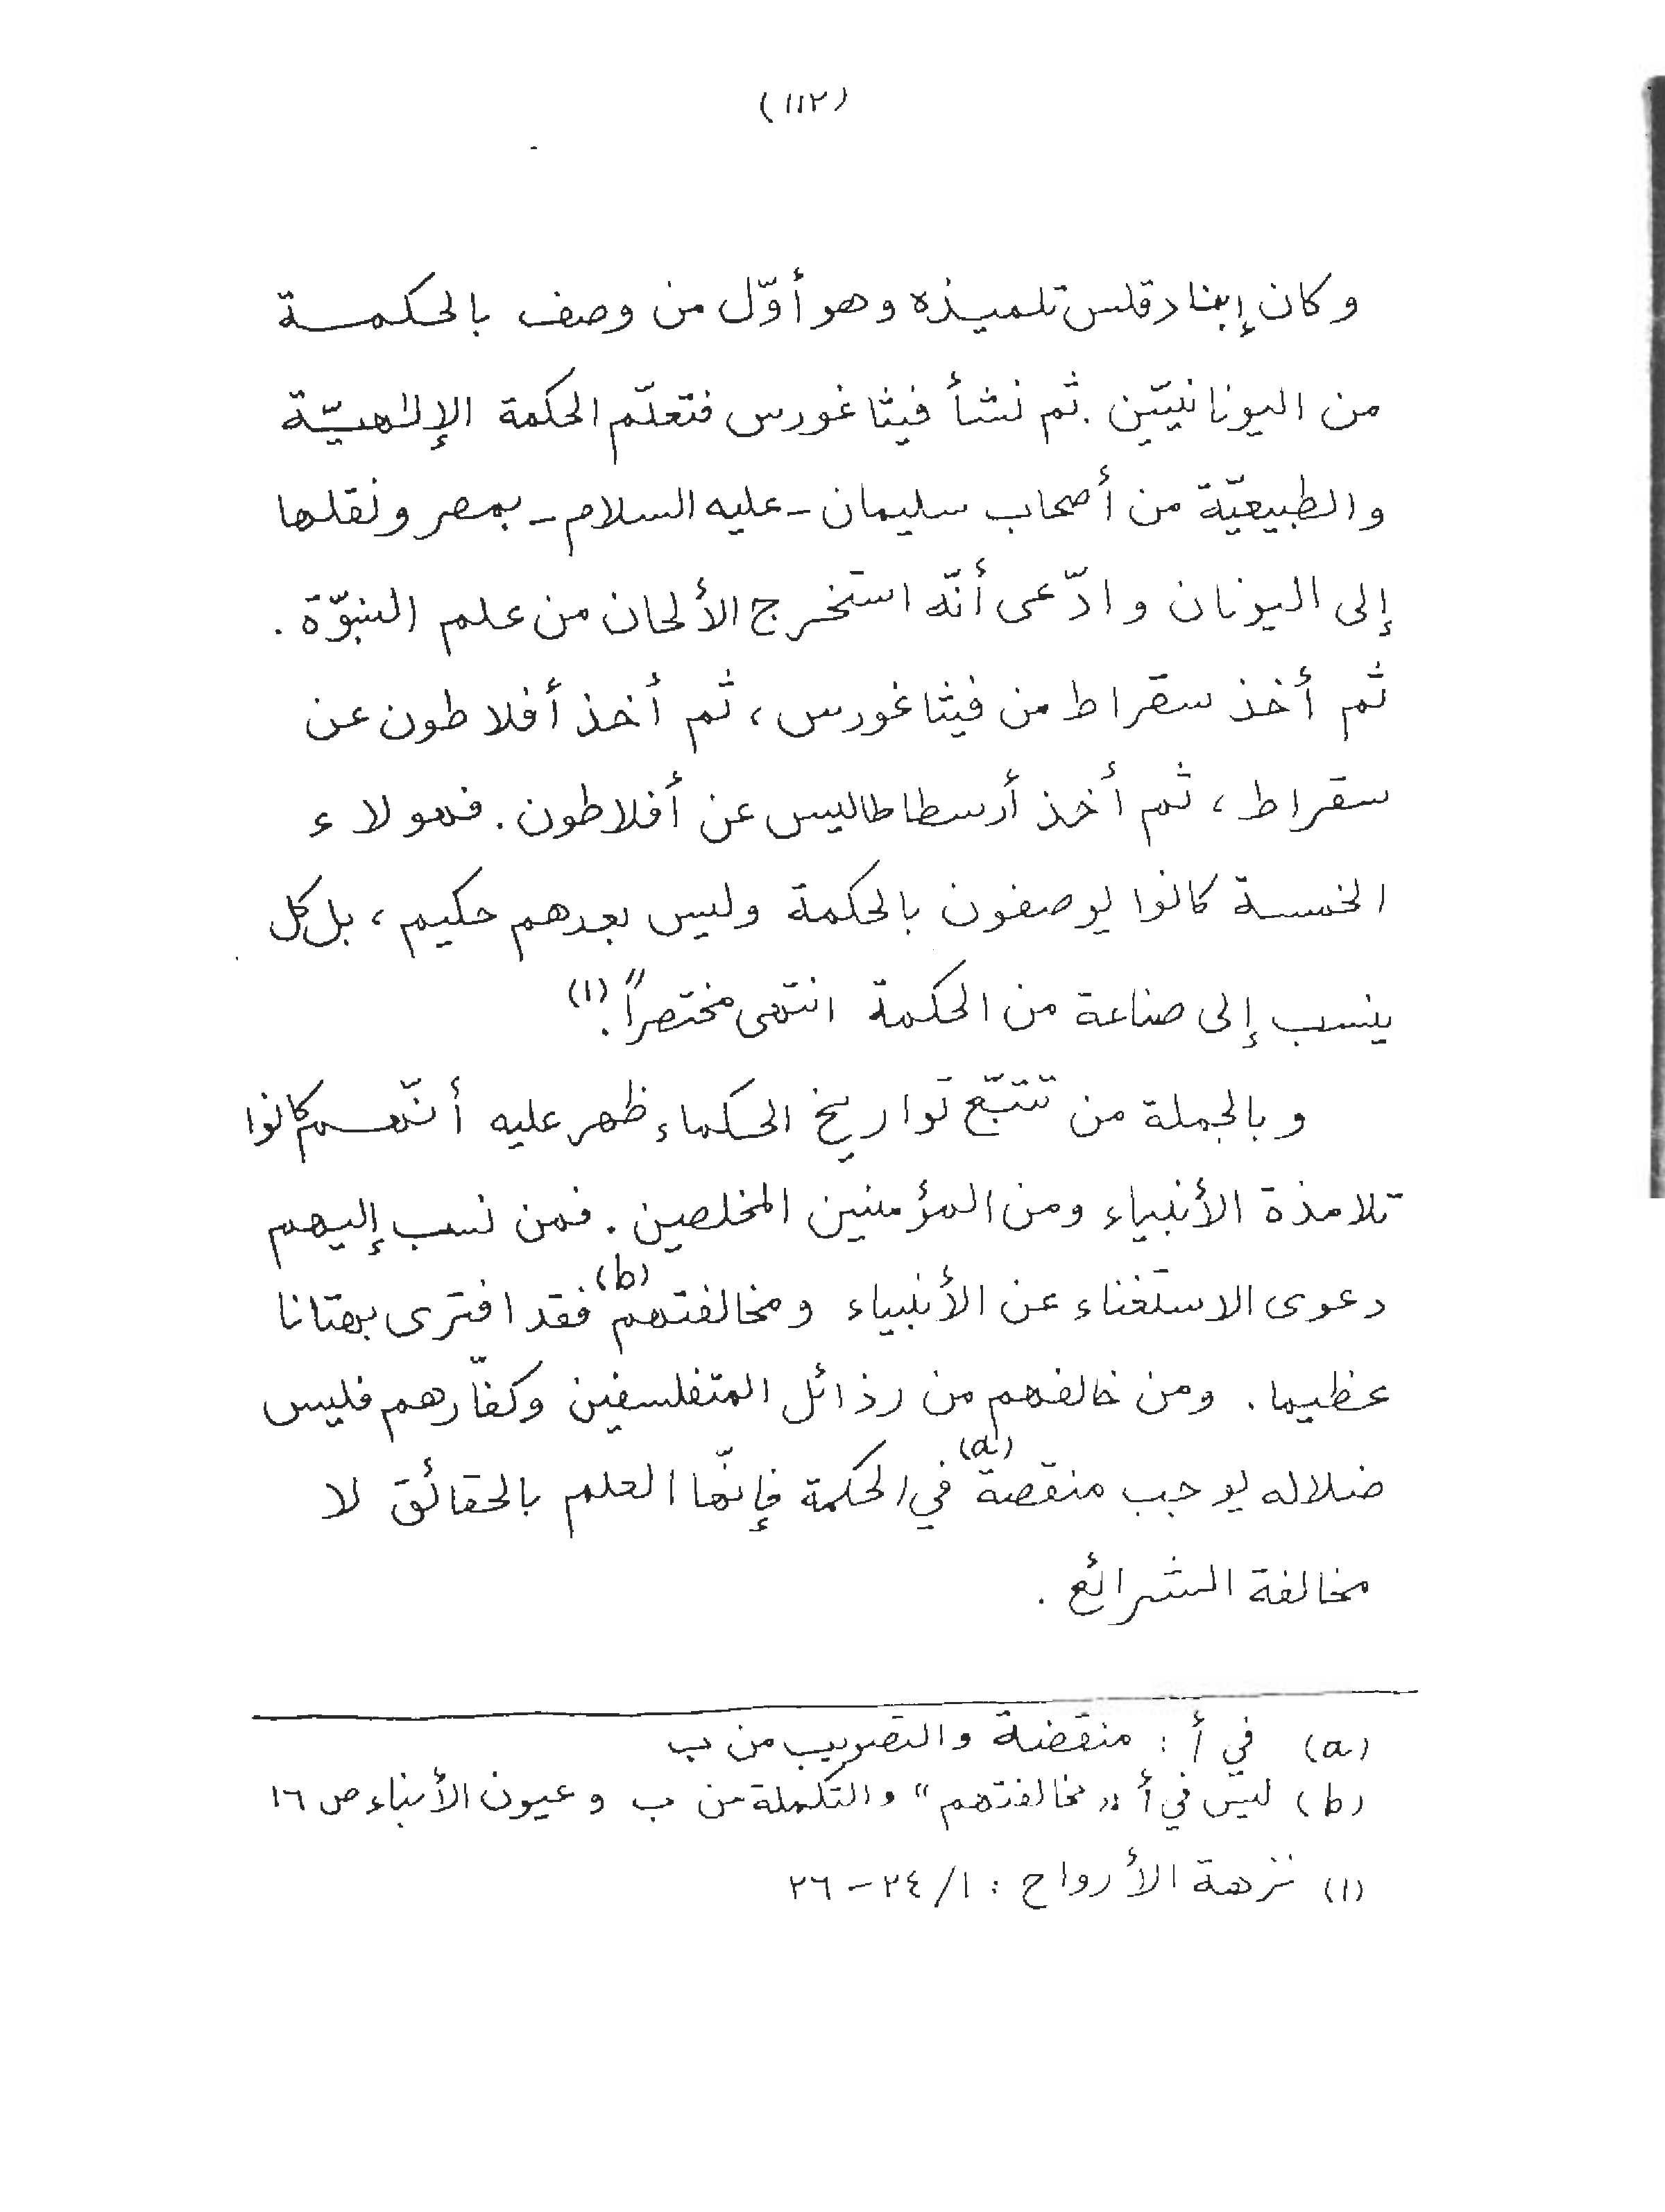 (١١٢)
وكان إبنادقلس تلميذه وهو أوّل من وصف بالحكمة
من اليونانيّين . ثم نشأ فيثاغورس فتعلّم الحكمة الإلٰهيّة
والطبيعيّة من أصحاب سليمان - عليه السلام - بمصر ونقلها
إلى اليونان وادّعى أنّه استخرج الألحان من علم النبوّة .
ثم أخذ سقراط من فيثاغورس ، ثم أخذ أفلاطون عن
سقراط ، ثم أخذ أرسطاطاليس عن أفلاطون . فهولاء
الخمسة كانوا يوصفون بالحكمة وليس بعدهم حكيم ، بل كل
ينسب إلى صناعة من الحكمة انتهى مختصراً" . (١)
وبالجملة من تتبّع تواريخ الحكماء ظهر عليه أنّهم كانوا
تلامذة الأنبياء ومن المؤمنين المخلصين . فمن نسب إليهم
دعوى الاستغناء عن الأنبياء ومخالفتهم (b) فقد افترى بهتانا
عظيما . ومن خالفهم من رذائل المتفلسفين وكفّارهم فليس
ضلاله يوجب منقصة (a) في الحكمة فإنّها العلم بالحقائق لا
مخالفة الشرائع .
(a) في أ : منقضة والتصويب من ب
(b) ليس في أ "مخالفتهم" والتكملة من ب وعيون الأنباء ص ١٦
(١) نزهة الأرواح : ١/ ٢٤ - ٢٦